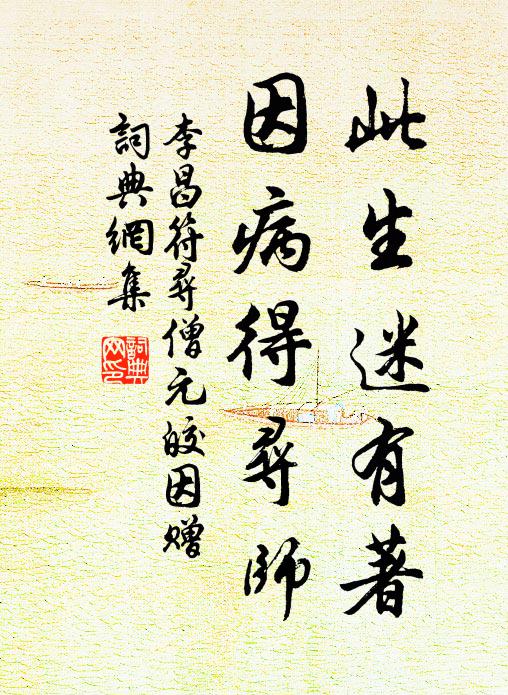 此生迷有著
因病得尋師
李昌符尋僧元皎因贈
詞典網集
詞典
网印